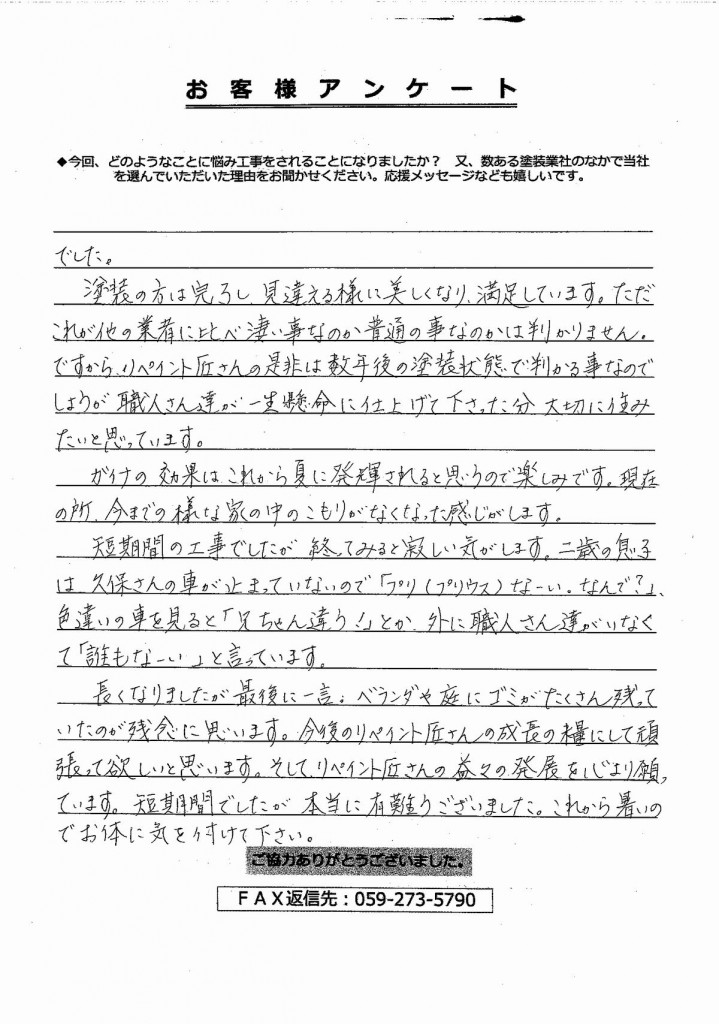 お客様アンケート
◆今回、どのようなことに悩み工事をされることになりましたか？　又、数ある塗装業社のなかで当社
を選んでいただいた理由をお聞かせください。応援メッセージなども嬉しいです。
でした。
塗装の方は完了し、見違える様に美しくなり、満足しています。ただ
これが他の業者に比べ凄い事なのか普通の事なのかは判かりません。
ですから、リペイント匠さんの是非は数年後の塗装状態で判かる事なので
しょうが職人さん達が一生懸命に仕上げて下さった分、大切に住み
たいと思っています。
ガイナの効果はこれから夏に発揮されると思うので楽しみです。現在
の所、今までの様な家の中のこもりがなくなった感じがします。
短期間の工事でしたが終ってみると寂しい気がします。二歳の息子
は、久保さんの車が止まっていないので「プリ(プリウス)なーい。なんで?」、
色違いの車を見ると「兄ちゃん違う!」とか、外に職人さん達がいなく
て「誰もなーい」と言っています。
長くなりましたが最後に一言。ベランダや庭にゴミがたくさん残って
いたのが残念に思います。今後のリペイント匠さんの成長の糧にして頑
張って欲しいと思います。そして、リペイント匠さんの益々の発展を心より願っ
ています。短期間でしたが本当に有難うございました。これから暑いの
でお体に気を付けて下さい。
ご協力ありがとうございました。
ＦＡＸ返信先：059-273-5790